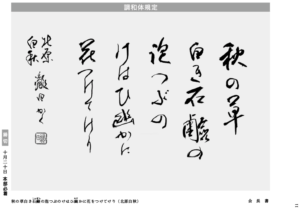 調和体規定
秋の草
白き石鹸の
泡つぶの
けはひ幽かに
花つけてけり
北原
白秋
かく
十月二十日 本部必着
秋の草白き石鹸の泡つぶのけはひ幽かに花をつけてけり（北原白秋）